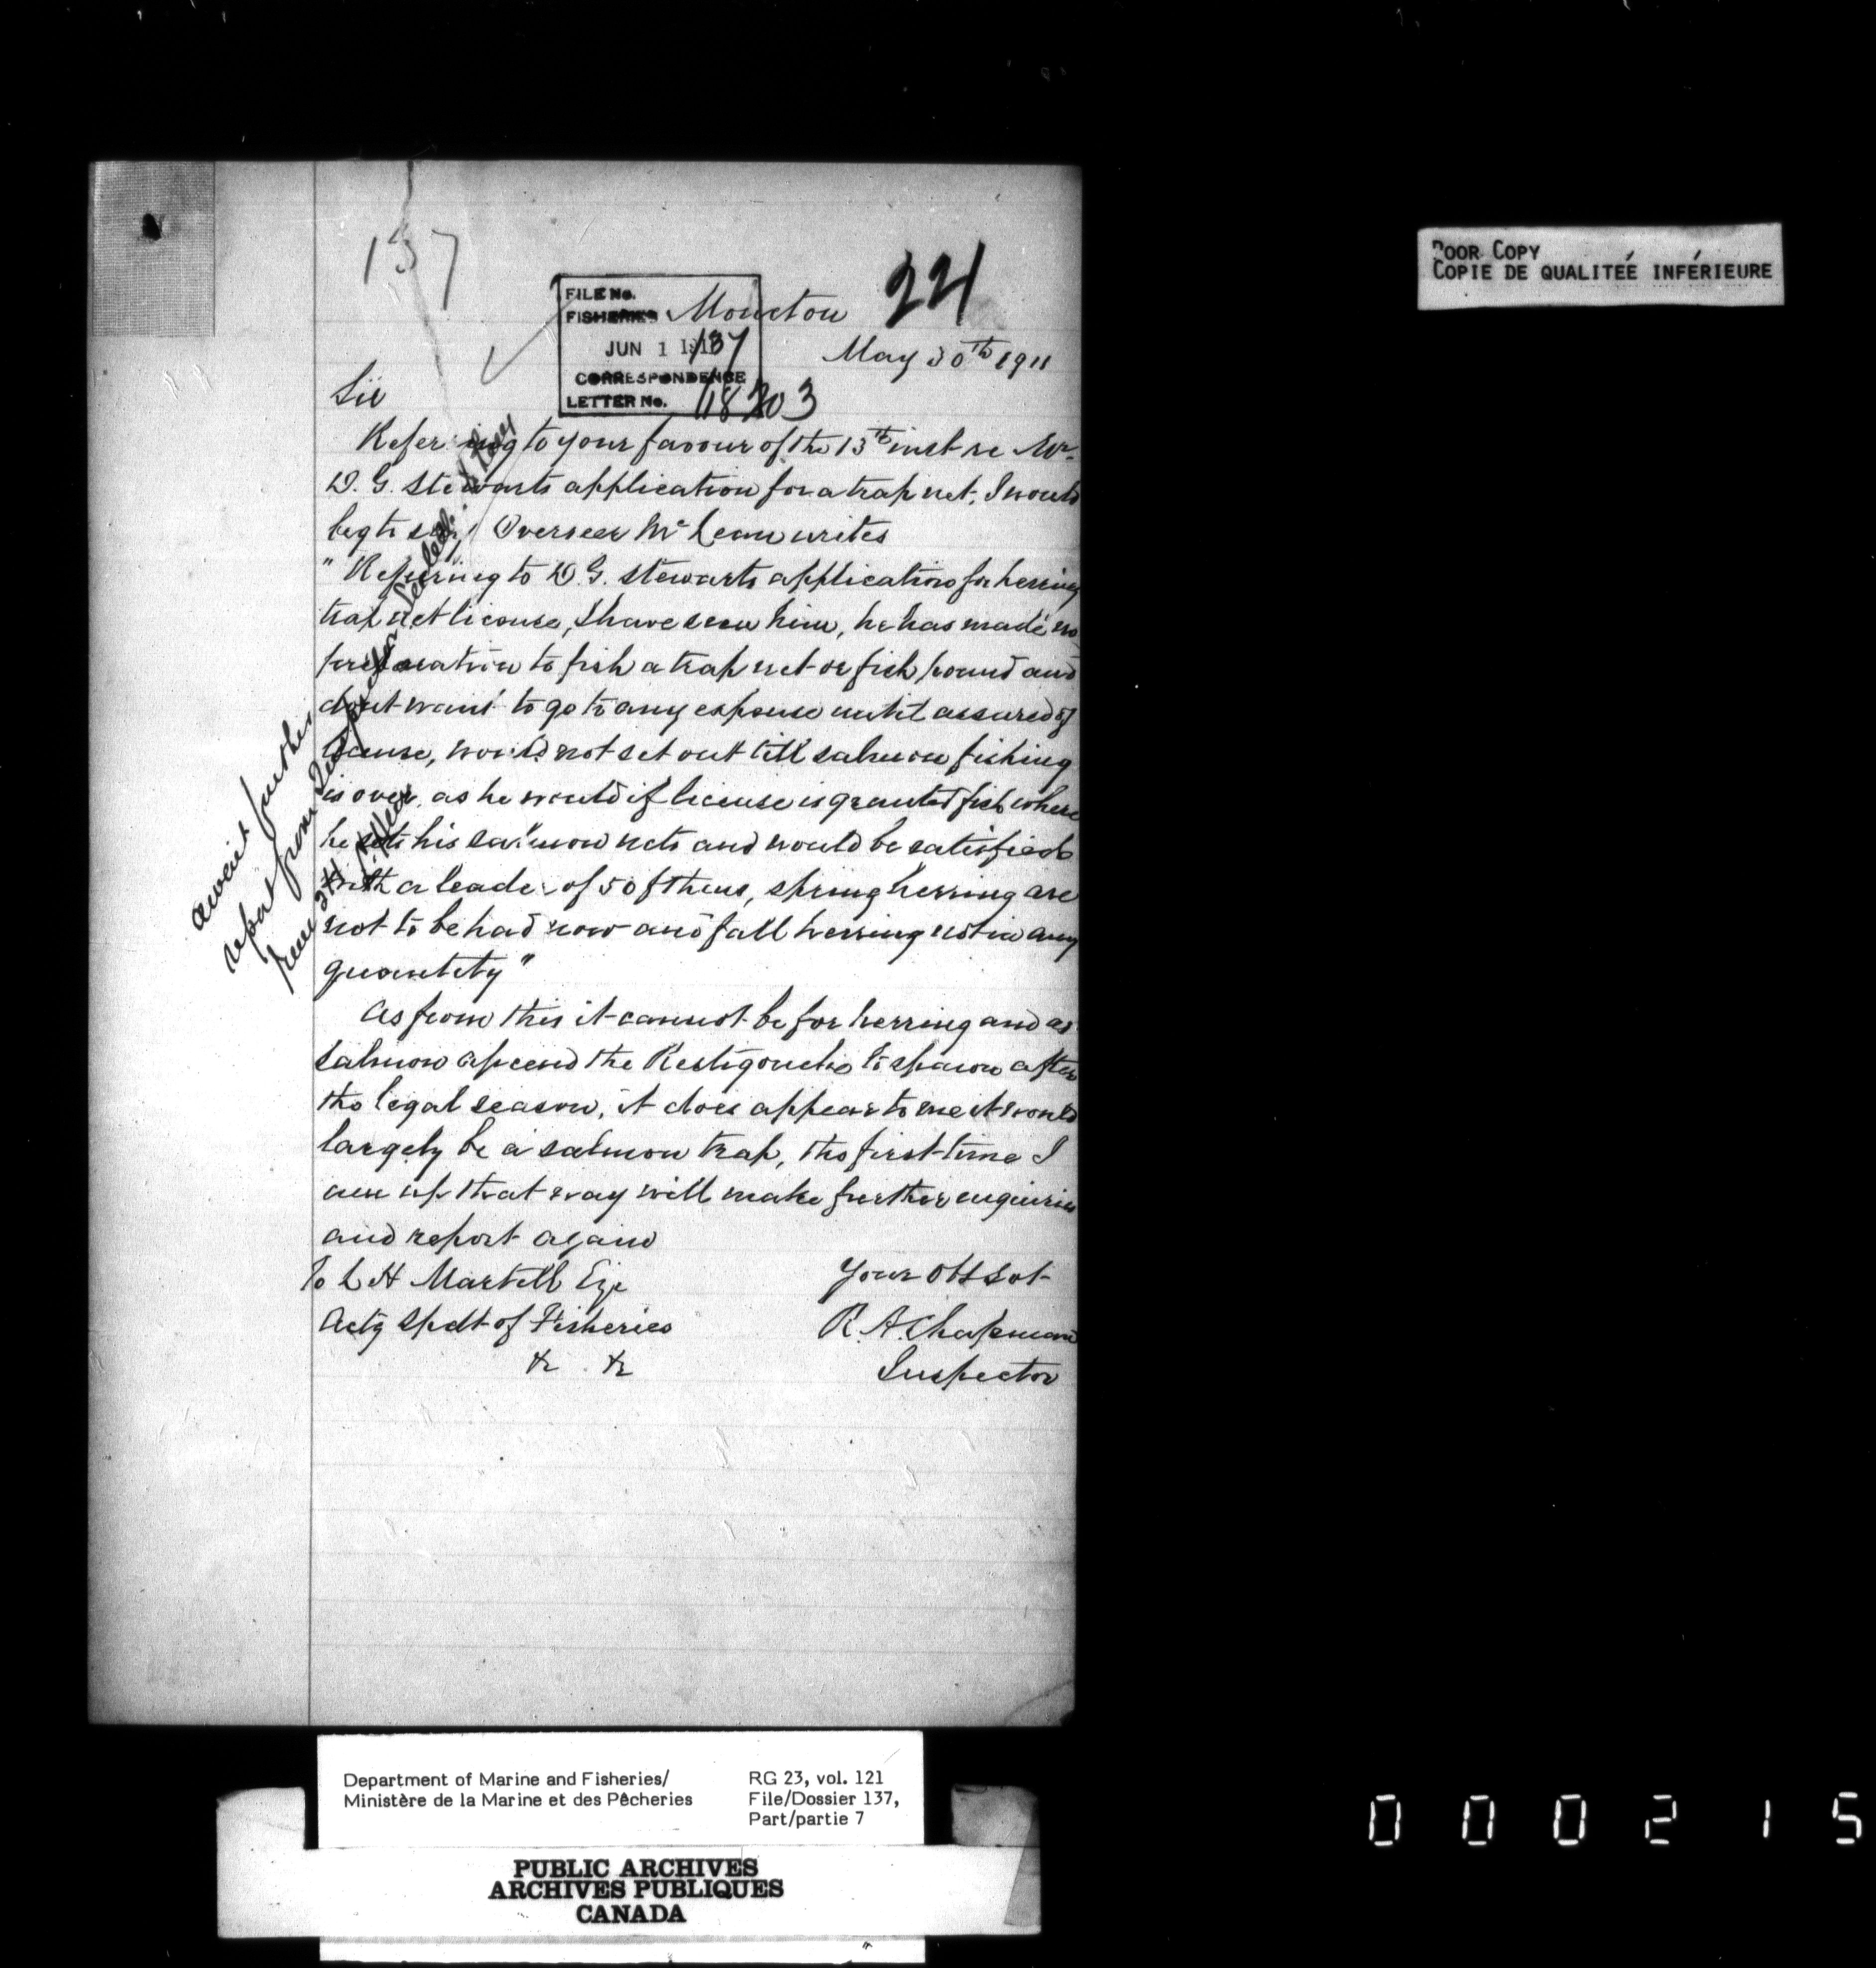 137
221
FILE No.
FISHERIES
JUN 1 1911 137
CORRESPONDENCE
LETTER No. 118203
Moncton
May 30th 1911
Sir
Referring to your favour of the 13th inst re Mr.
D. G. Stewarts application for a trap net, I would
beg to say Overseer McLean writes
"Referring to D. G. Stewarts application for herring
trap net license, I have seen him, he has made no
preparation to fish a trap net or fish pound and
dont want to go to any expense until assured of
license, would not set out till salmon fishing
is over, as he would if license is granted fish where
he sets his salmon nets and would be satisfied
with a leader of 50 fthms, spring herring are
not to be had now and fall herring not in any
quantity"
As from this it cannot be for herring and as
salmon ascend the Restigouche to spawn after
the legal season, it does appear to me it would
largely be a salmon trap, the first time I
am up that way will make further enquiries
and report again
To L H Martell Eqr
Actg Spdt of Fisheries
&c &c
Your Obt Svt
R. A. Chapman
Inspector
await further
report from
POOR COPY
COPIE DE QUALITEÉ INFÉRIEURE
Department of Marine and Fisheries/
Ministère de la Marine et des Pêcheries
RG 23, vol. 121
File/Dossier 137,
Part/partie 7
PUBLIC ARCHIVES
ARCHIVES PUBLIQUES
CANADA
000215